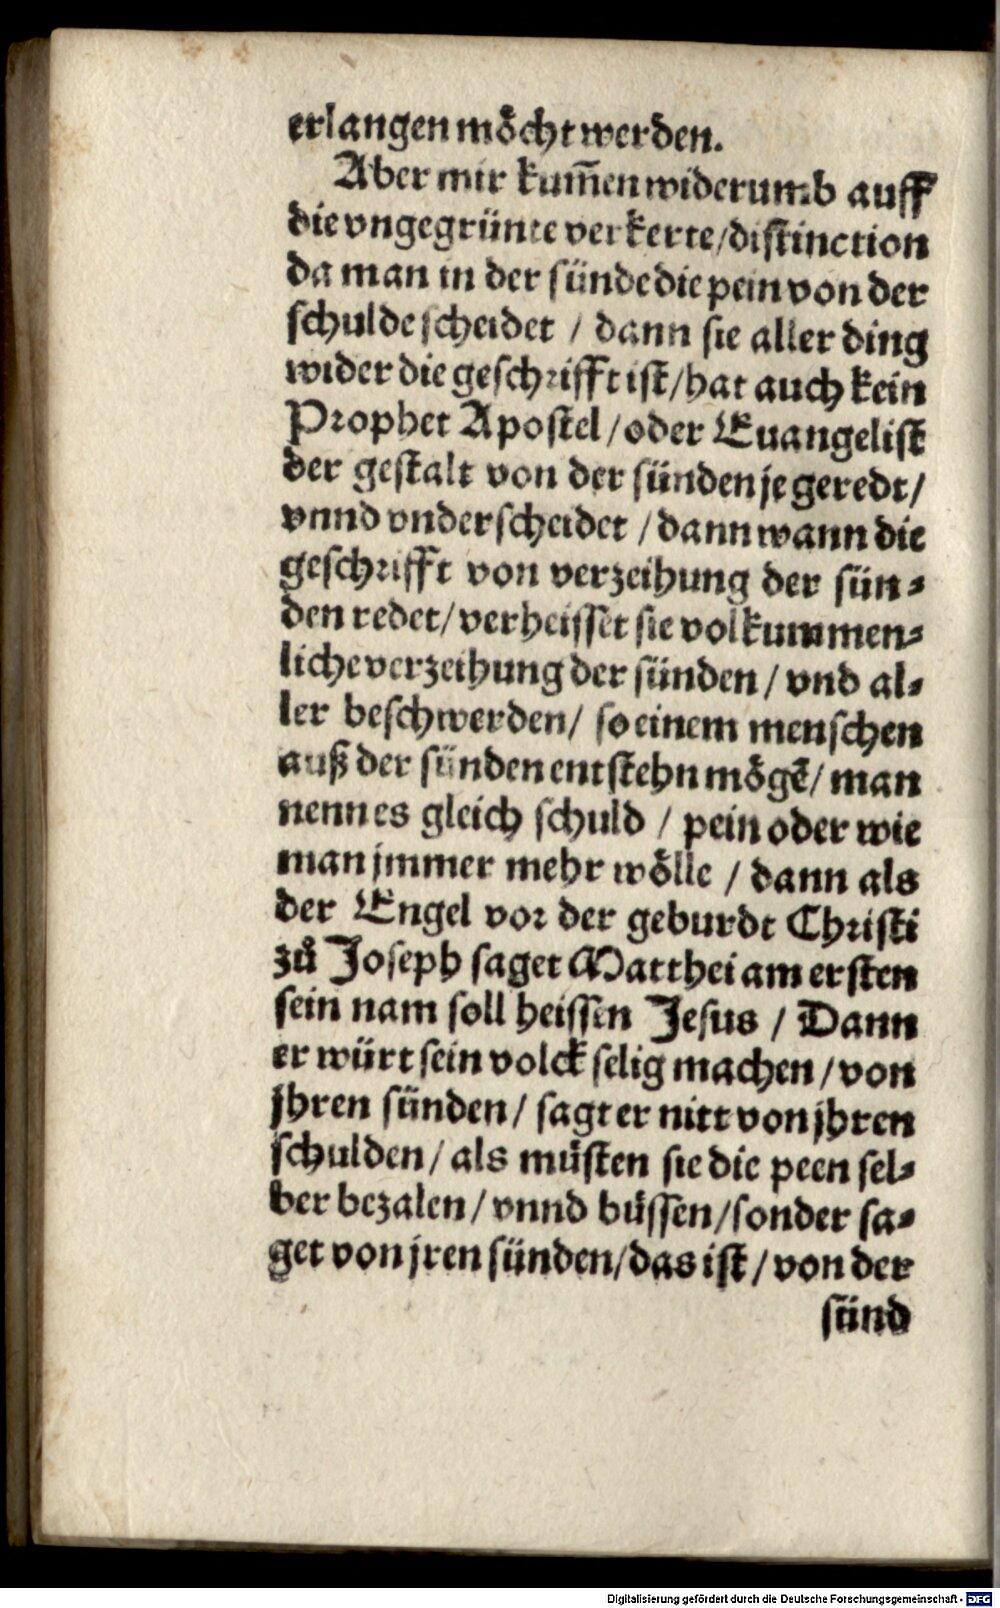 erlangen moͤcht werden.
Aber mir kum̃en widerumb auff
die vngegrünte verkerte/distinction
da man in der sünde die pein von der
schulde scheidet / dann sie aller ding
wider die geschrifft ist/hat auch kein
Prophet Apostel/oder Euangelist
der gestalt von der sünden je geredt/
vnnd vnderscheidet / dann wann die
geschrifft von verzeihung der sün-
den redet/verheisset sie volkummen-
liche verzeihung der sünden / vnd al-
ler beschwerden/ so einem menschen
auß der sünden entstehn moͤgẽ/ man
nenn es gleich schuld / pein oder wie
man jmmer mehr woͤlle / dann als
der Engel vor der geburdt Christi
zuͦ Joseph saget Matthei am ersten
sein nam soll heissen Jesus / Dann
er würt sein volck selig machen/von
jhren sünden/ sagt er nitt von jhren
schulden/ als müsten sie die peen sel-
ber bezalen/vnnd büssen/sonder sa-
get von jren sünden/das ist / von der
sünd
Digitalisierung gefördert durch die Deutsche Forschungsgemeinschaft - DFG